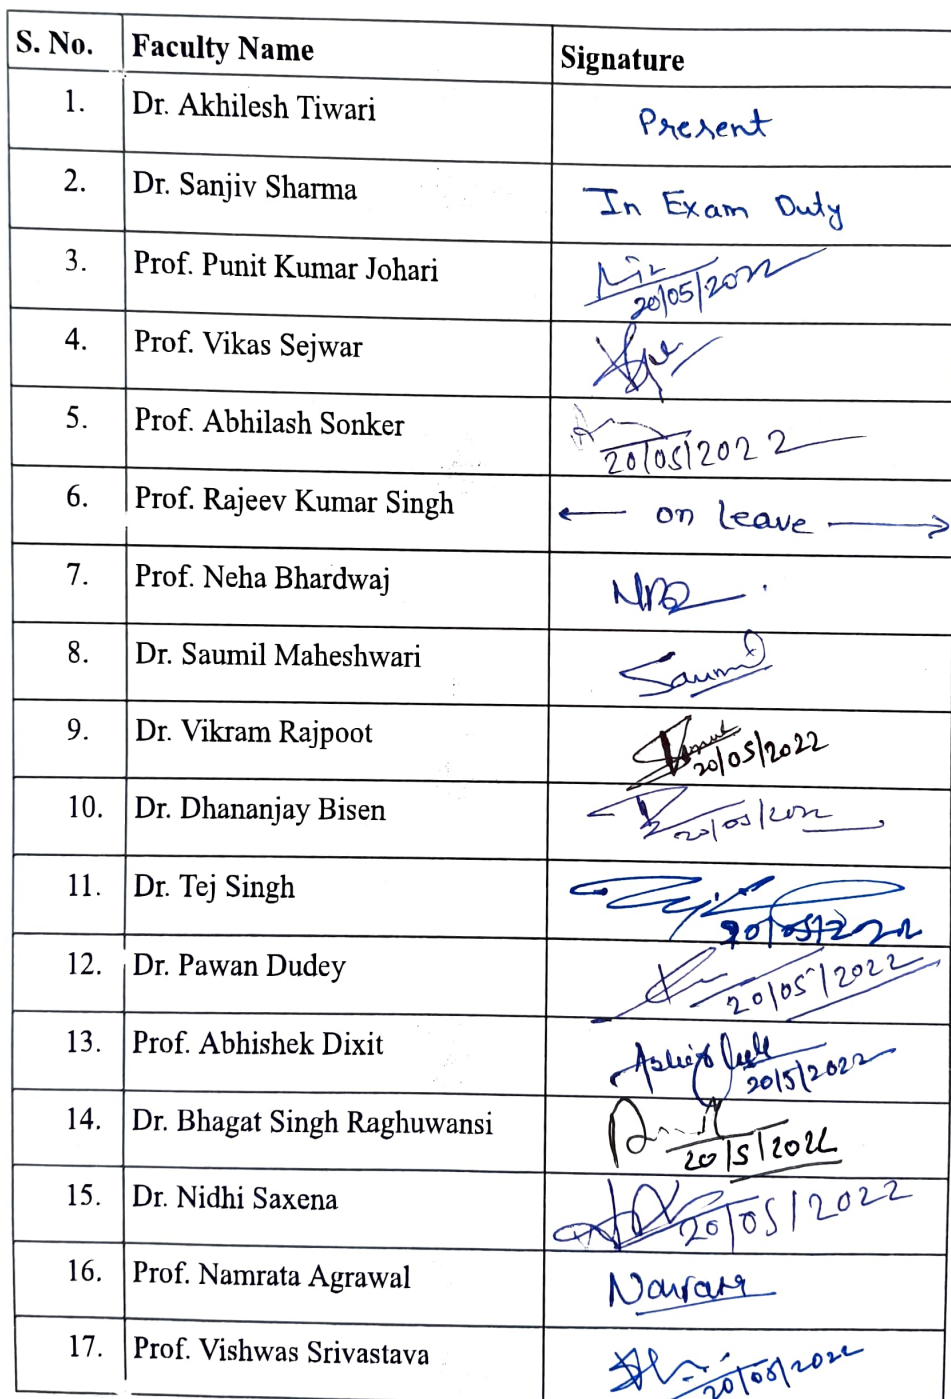 S. No. Faculty Name Signature
1. Dr. Akhilesh Tiwari Present
2. Dr. Sanjiv Sharma In Exam Duty
3. Prof. Punit Kumar Johari
20/05/2022
4. Prof. Vikas Sejwar
5. Prof. Abhilash Sonker
20/05/2022
6. Prof. Rajeev Kumar Singh on leave
7. Prof. Neha Bhardwaj
8. Dr. Saumil Maheshwari Saumil
9. Dr. Vikram Rajpoot
20/05/2022
10. Dr. Dhananjay Bisen
20/05/2022
11. Dr. Tej Singh
20/05/2022
12. Dr. Pawan Dudey
20/05/2022
13. Prof. Abhishek Dixit
20/5/2022
14. Dr. Bhagat Singh Raghuwansi
20/5/2022
15. Dr. Nidhi Saxena
20/05/2022
16. Prof. Namrata Agrawal
17. Prof. Vishwas Srivastava
20/05/2022